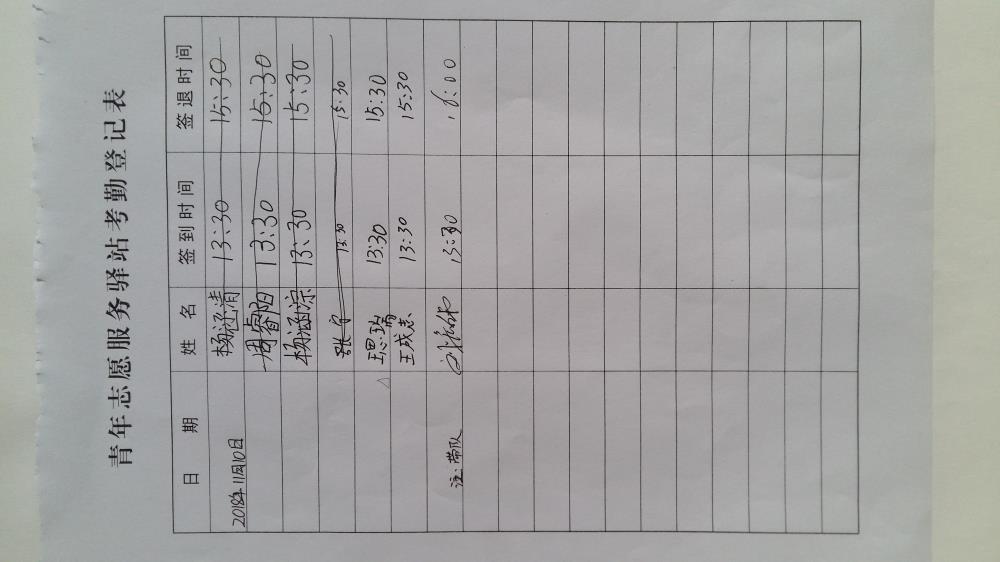 青年志愿服务驿站考勤登记表
日期 姓名 签到时间 签退时间
2018年11月10日 杨涵清 13:30 15:30
周睿阳 13:30 15:30
杨涵淙 13:30 15:30
张宁 13:30 15:30
王思瑞 13:30 15:30
王成志 13:30 15:30
注:带队 13:30 16:00